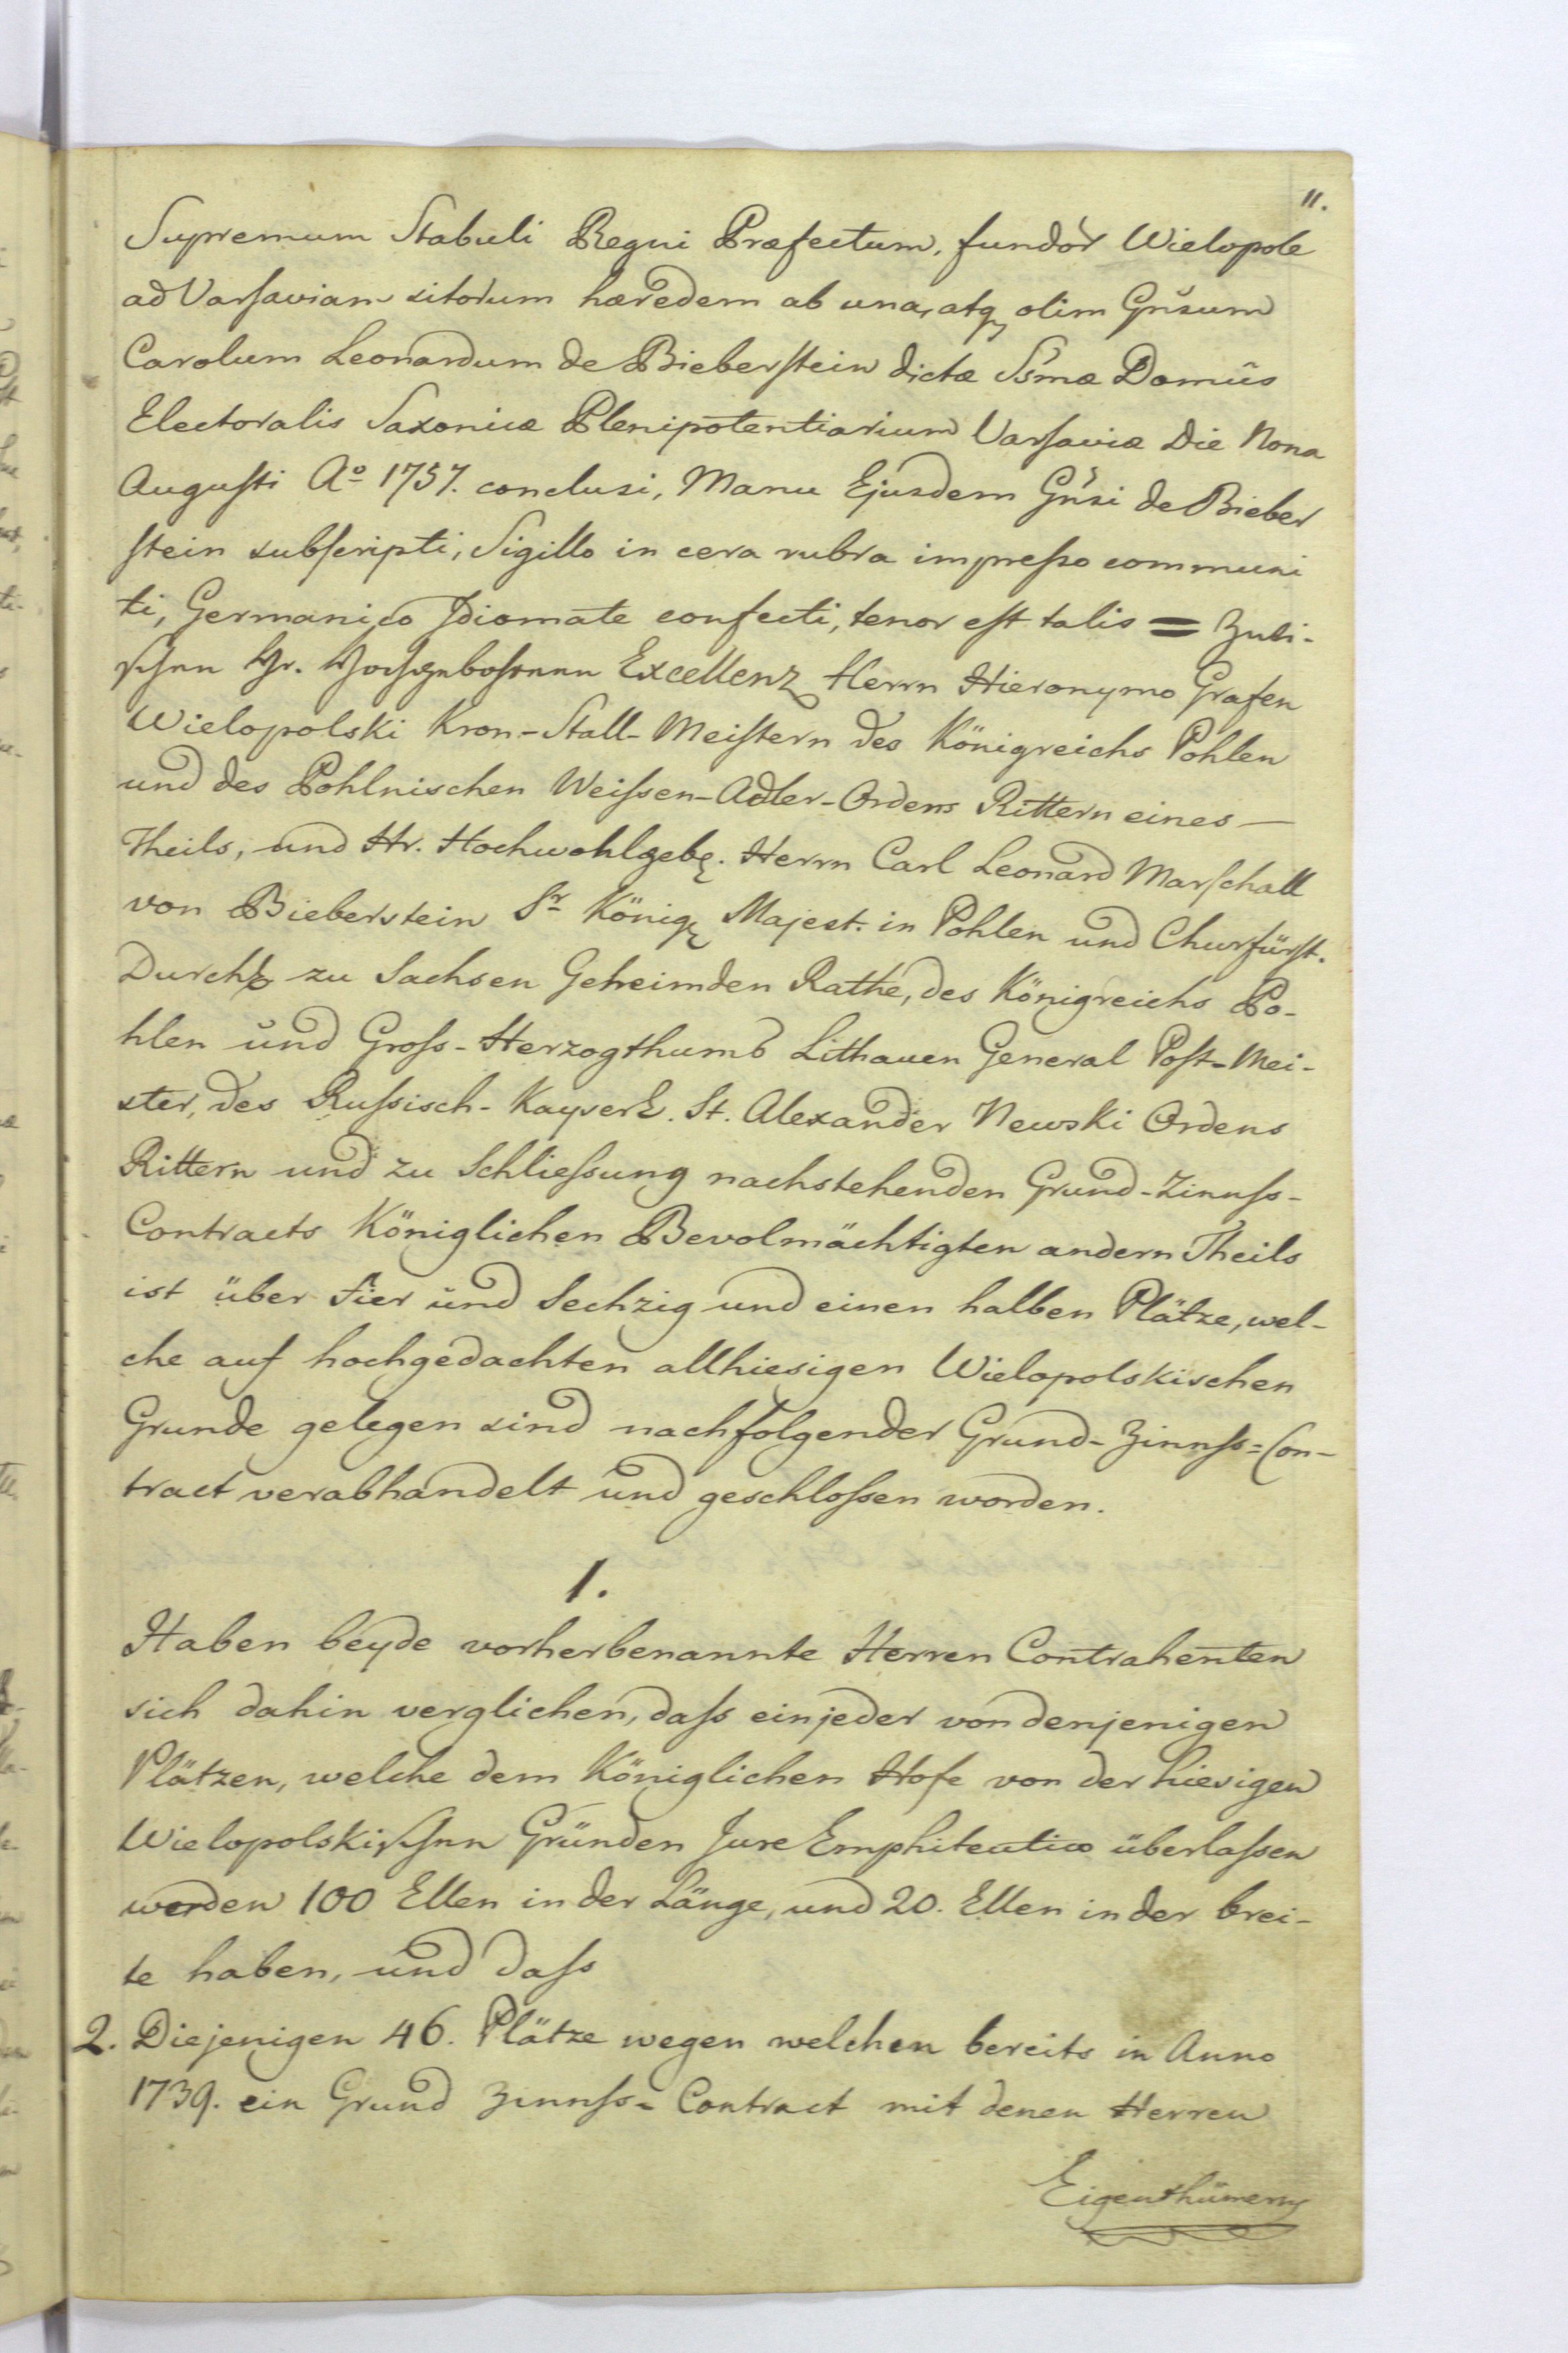 11.
Supremum Stabuli Regni Præfectum, fundor̀ Wielopole
ad Varsaviam sitorum hæredem ab una, atq olim Gn̆sum
Carolum Leonardum de Bieberstein dictæ Ss̄mæ Domûs
Electoralis Saxonicæ Plenipotentiarium Varsaviæ Die Nona
Augusti Aº 1757. conclusi, Manu Ejusdem Gn̆si de Bieber
stein subscripti, Sigillo in cera rubra impreſso communi
ti, Germanico Idiomate confecti, tenor est talis = Zwi-
schen Hr. Hochgebohrnen Excellenz Herrn Hieronymo Grafen
Wielopolski Kron-Stall-Meistern des Königreichs Pohlen
und des Pohlnischen Weiſsen-Adler-Ordens Rittern eines —
Theils, und Hr. Hochwohlgeb. Herrn Carl Leonard Marschall
von Bieberstein Sr Königl Majest. in Pohlen und Churfürst.
Durchl zu Sachsen Geheimden Rathe, des Königreichs Po-
hlen und Groſs-Herzogthumb Lithauen General Post-Mei-
ster, des Ruſsisch-Kayserl. St. Alexander Newski Ordens
Rittern und zu Schlieſsung nachstehenden Grund-Zinnſs-
Contracts Königlichen Bevolmächtigten andern Theils
ist über Fier und Sechzig und einen halben Plätze, wel-
che auf hochgedachten allhiesigen Wielopolskischen
Grunde gelegen sind nachfolgender Grund-Zinnſs=Con-
tract verabhandelt und geschloſsen worden.
1.
Haben beyde vorherbenannte Herren Contrahenten
sich dahin verglichen, daſs einjeder von denjenigen
Plätzen, welche dem Königlichen Hofe von der hiesigen
Wielopolskischen Gründen Jure Emphiteutico überlaſsen
worden 100 Ellen in der Länge, und 20. Ellen in der brei-
te haben, und daſs
2. Diejenigen 46. Plätze wegen welchen bereits in Anno
1739. ein Grund Zinnſs-Contract mit denen Herren
Eigenthümern